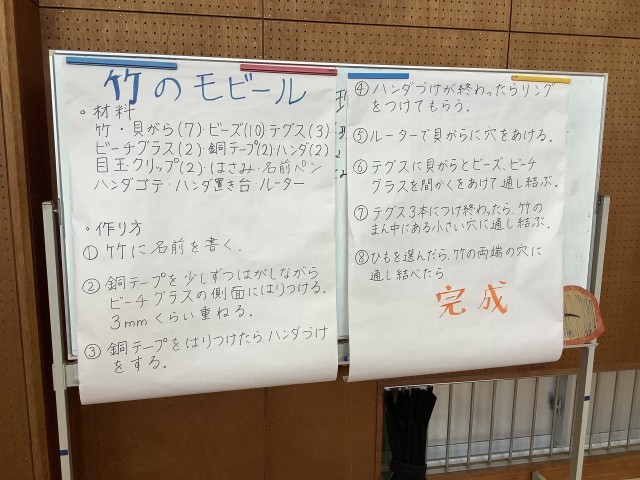 竹のモビール
・材料
竹・貝がら(7)・ビーズ(10)テグス(3)
ビーチグラス(2)・銅テープ(2)ハンダ(2)
目玉クリップ(2)・はさみ・名前ペン
ハンダゴテ・ハンダ置き台・ルーター
・作り方
①竹に名前を書く.
②銅テープを少しずつはがしながら
ビーチグラスの側面にはりつける.
3mmくらい重ねる.
③銅テープをはりつけたら、ハンダづけ
をする.
④ハンダづけが終わったらリング
をつけてもらう.
⑤ルーターで貝がらに穴をあける.
⑥テグスに貝がらとビーズ、ビーチ
グラスを間かくをあけて通し結ぶ.
⑦テグス3本につけ終わったら、竹の
まん中にある小さい穴に通し結ぶ.
⑧ひもを選んだら、竹の両端の穴に
通し結べたら
完成